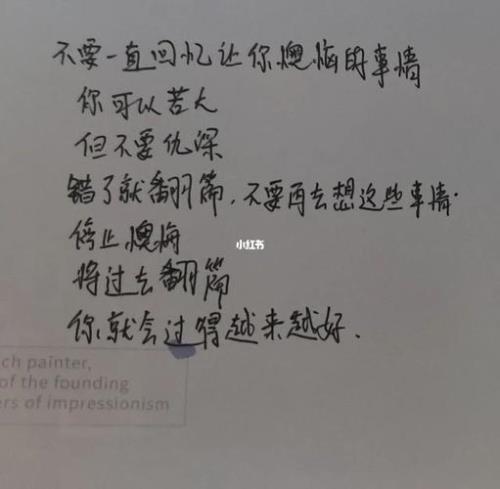 不要一直回忆让你懊悔的事情
你可以苦大
但不要仇深
错了就翻篇,不要再去想这些事情.
停止懊悔
将过去翻篇
你就会过得越来越好.
小红书
ch painter,
of the founding
ers of impressionism